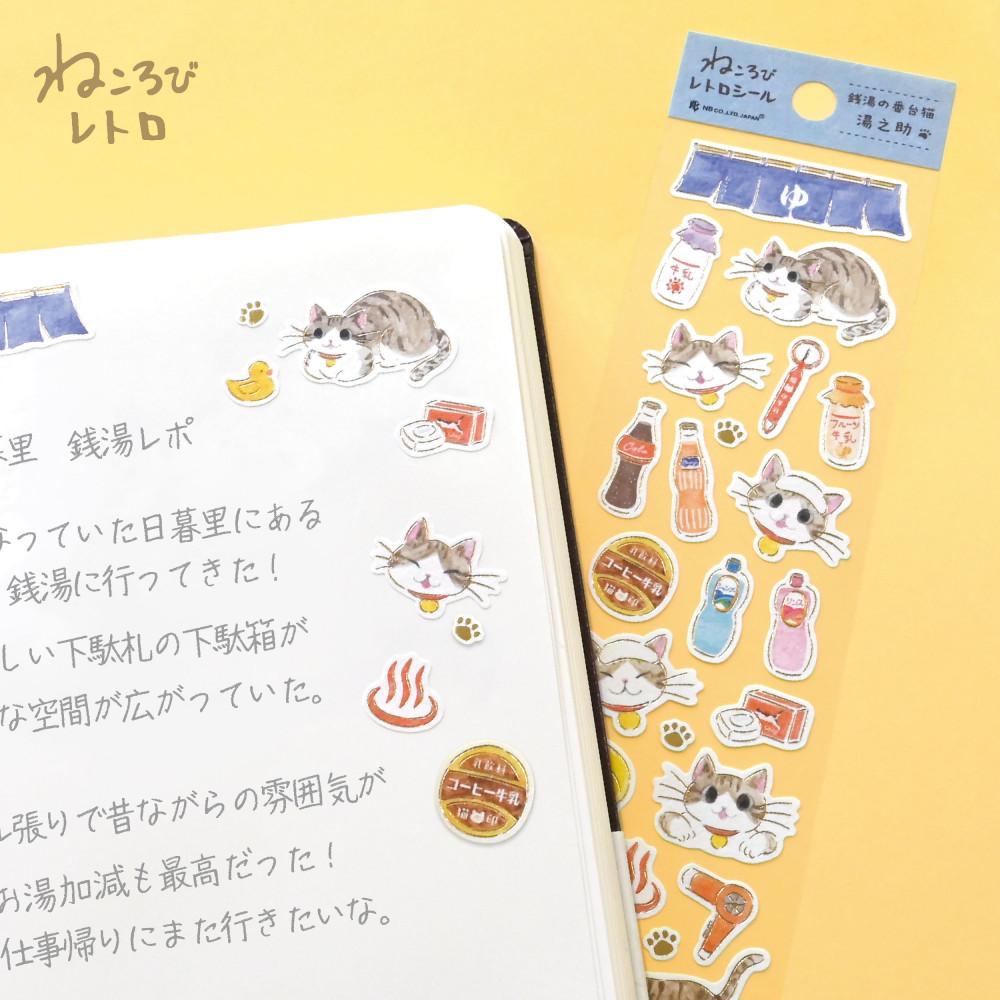 ねころび
レトロ
ねころび
レトロシール
NB CO.,LTD. JAPAN®
銭湯の番台猫
湯之助
ゆ
牛乳
フルーツ
牛乳
Cola
乳飲料
コーヒー牛乳
猫印
シャンプー
リンス
暮里 銭湯レポ
なっていた日暮里にある
銭湯に行ってきた!
しい下駄札の下駄箱が
な空間が広がっていた。
ル張りで昔ながらの雰囲気が
お湯加減も最高だった!
仕事帰りにまた行きたいな。
乳飲料
コーヒー牛乳
猫印